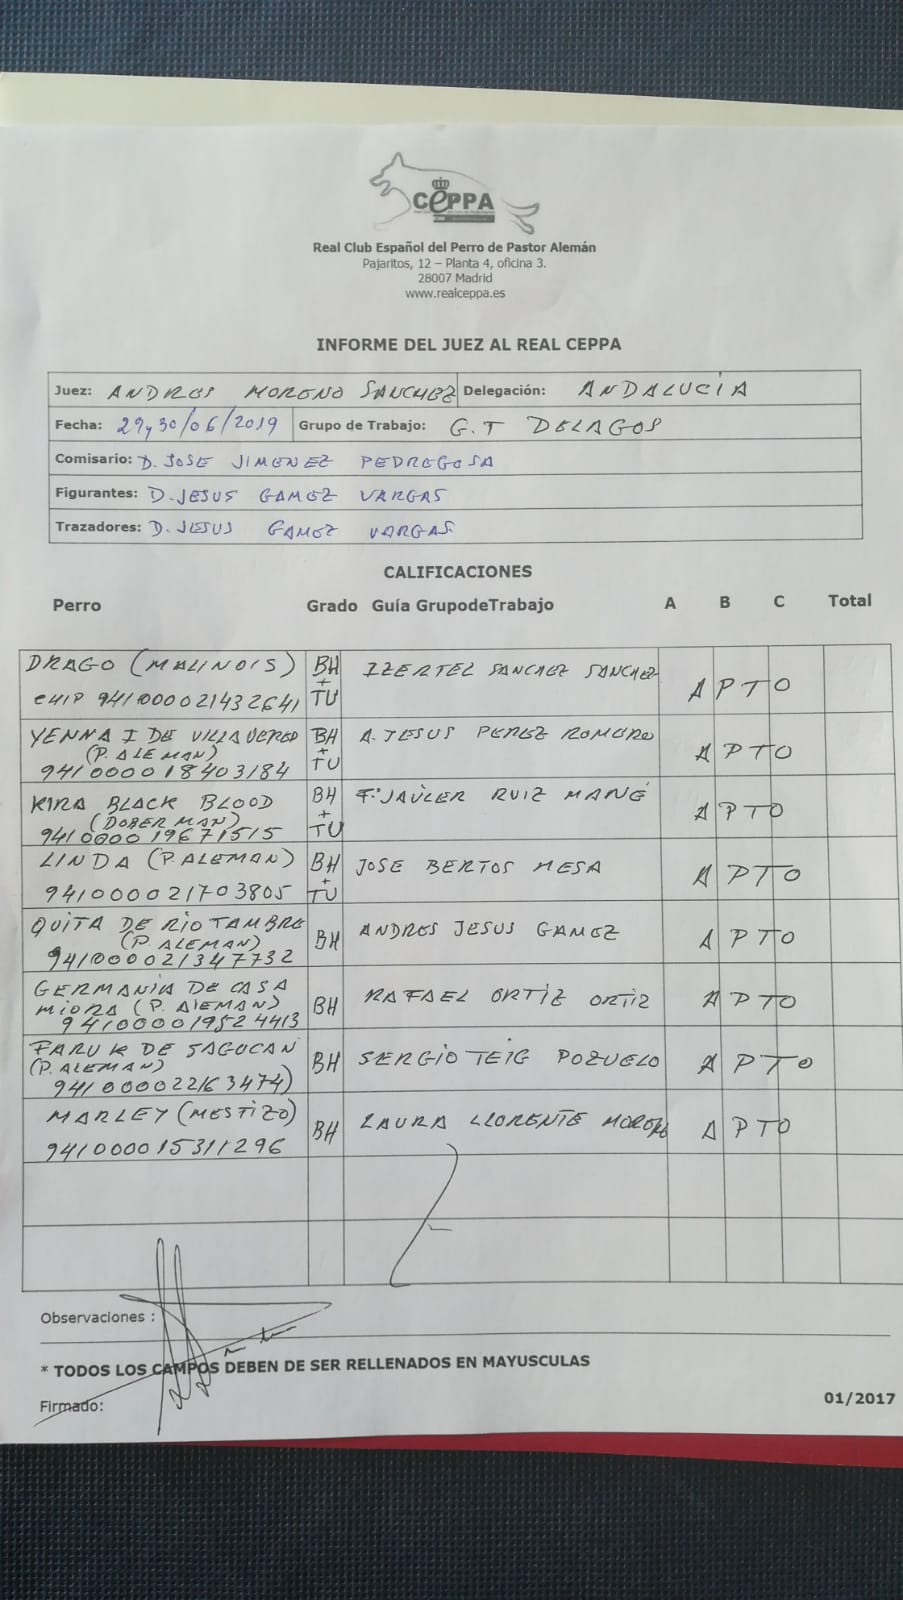 CEPPA
Real Club Español del Perro de Pastor Alemán
Pajaritos, 12 – Planta 4, oficina 3.
28007 Madrid
www.realceppa.es
INFORME DEL JUEZ AL REAL CEPPA
Juez: ANDRES MORENO SANCHEZ Delegación: ANDALUCÍA
Fecha: 29y30/06/2019 Grupo de Trabajo: G.T DELAGOS
Comisario: D. JOSE JIMENEZ PEDREGOSA
Figurantes: D. JESUS GAMEZ VARGAS
Trazadores: D. JESUS GAMEZ VARGAS
CALIFICACIONES
Perro Grado Guía GrupodeTrabajo A B C Total
DRAGO (MALINOIS) BH + TU IZERTEL SANCHEZ SANCHEZ APTO
CHIP 941000021432641
YENNA I DE VILLAVERED BH + TU A. JESUS PEREZ ROMERO APTO
(P. ALEMAN)
941000018403184
KIRA BLACK BLOOD BH + TU Fº JAVIER RUIZ MAÑÉ APTO
(DOBERMAN)
941000019671515
LINDA (P. ALEMAN) BH + TU JOSE BERTOS MESA APTO
941000021703805
QUITA DE RIO TAMBRE BH ANDRES JESUS GAMEZ APTO
(P. ALEMAN)
941000021347732
GERMANIA DE CASA BH RAFAEL ORTIZ ORTIZ APTO
MIORA (P. ALEMAN)
941000019524413
FARUK DE SAGUCAN BH SERGIO TEIG POZUELO APTO
(P. ALEMAN)
941000022163474)
MARLEY (MESTIZO) BH LAURA LLORENTE MORENO APTO
941000015311296
Observaciones :
* TODOS LOS CAMPOS DEBEN DE SER RELLENADOS EN MAYUSCULAS
Firmado:
01/2017